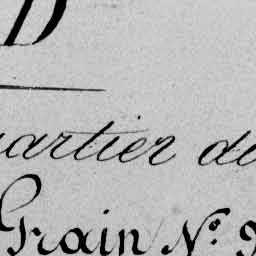 D
uartier du
Grain N° 9